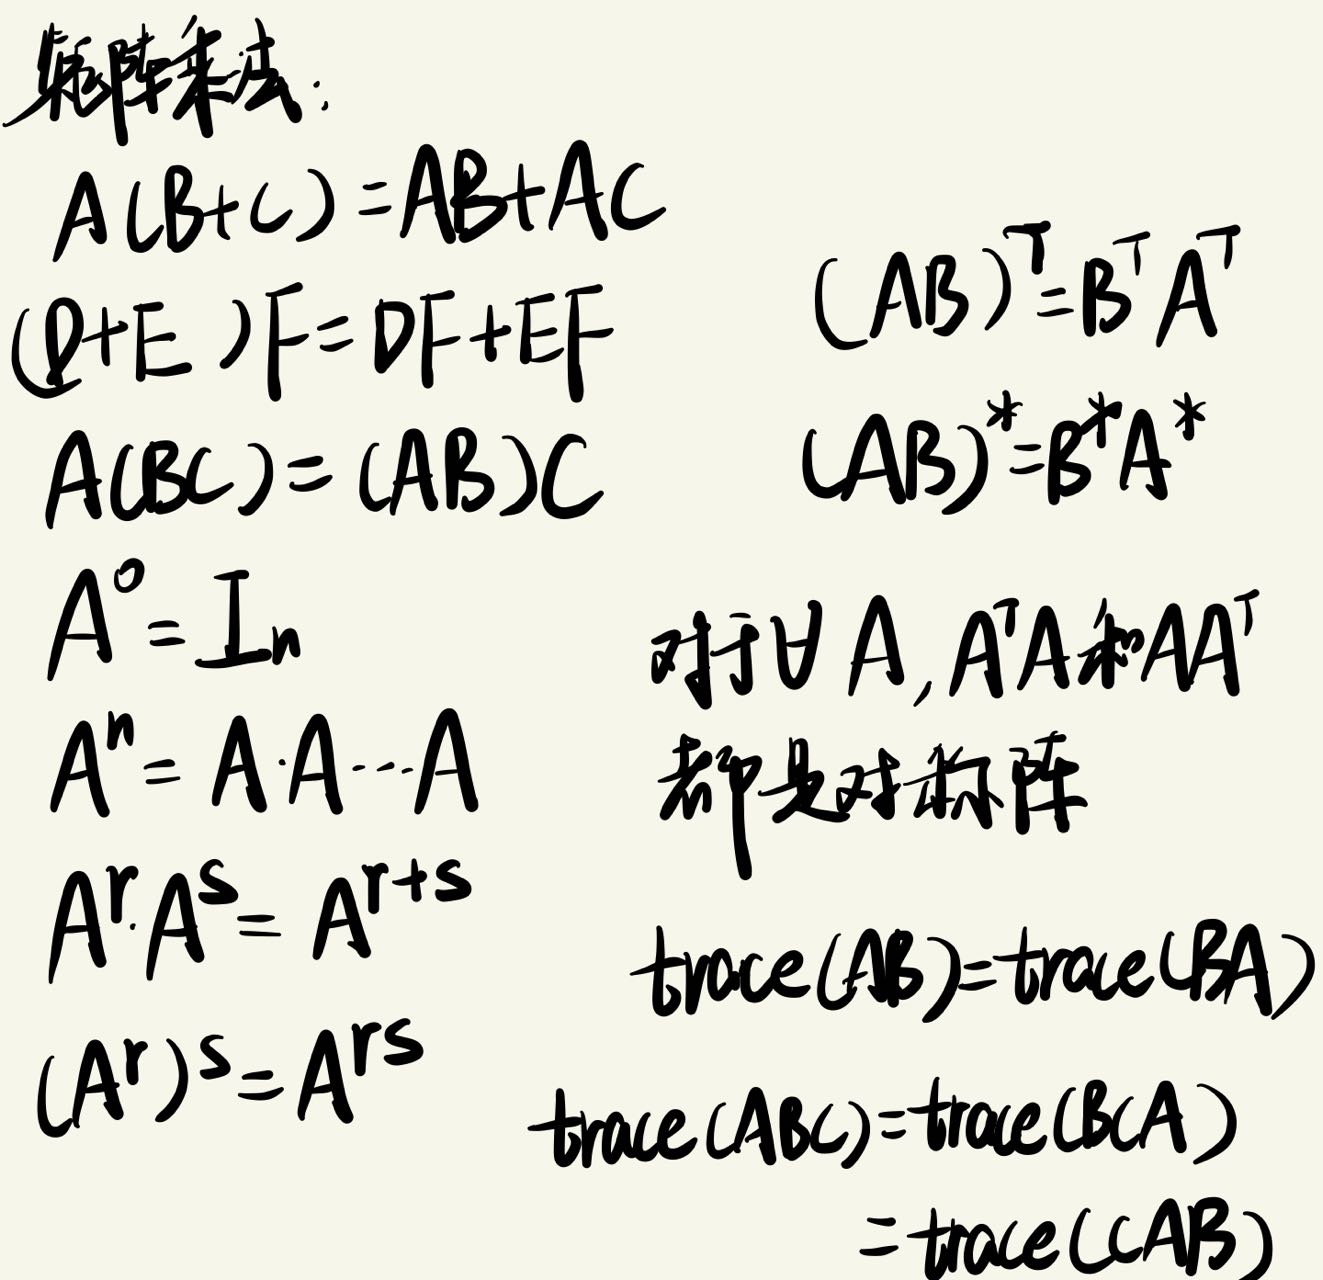 矩阵乘法:
A(B+C)=AB+AC
(D+E)F=DF+EF
A(BC)=(AB)C
A⁰=Iₙ
Aⁿ=A·A···A
Aʳ·Aˢ=Aʳ⁺ˢ
(Aʳ)ˢ=Aʳˢ
(AB)ᵀ=BᵀAᵀ
(AB)*=B*A*
对于∀A,AᵀA和AAᵀ
都是对称阵
trace(AB)=trace(BA)
trace(ABC)=trace(BCA)
=trace(CAB)